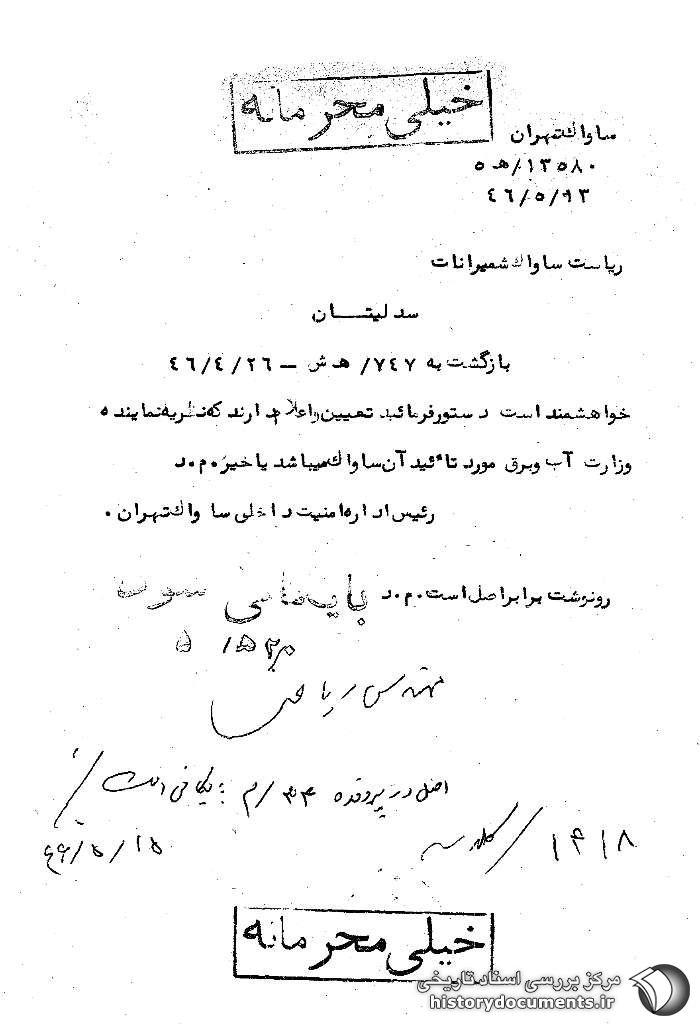 خیلی محرمانه
ساواک تهران
۱۳۵۸۰/هـ ۵
۴۶/۵/۱۳
ریاست ساواک شمیرانات
سد لیتــــان
بازگشت به ۷۴۷/ هـ ش – ۴۶/۴/۲۶
خواهشمند است دستور فرمائید تعیین و اعلام دارند که نظریه نماینده
وزارت آب و برق مورد تائید آن ساواک میباشد یا خیر.م.د
رئیس اداره امنیت داخلی ساواک تهران.
رونوشت برابر اصل است.م.د بایگانی شود
مهندس ریاحی
اصل در پرونده ۳۴/م بایگانی است
۱۴۱۸
۴۶/۵/۱۵
خیلی محرمانه
مرکز بررسی اسناد تاریخی
historydocuments.ir